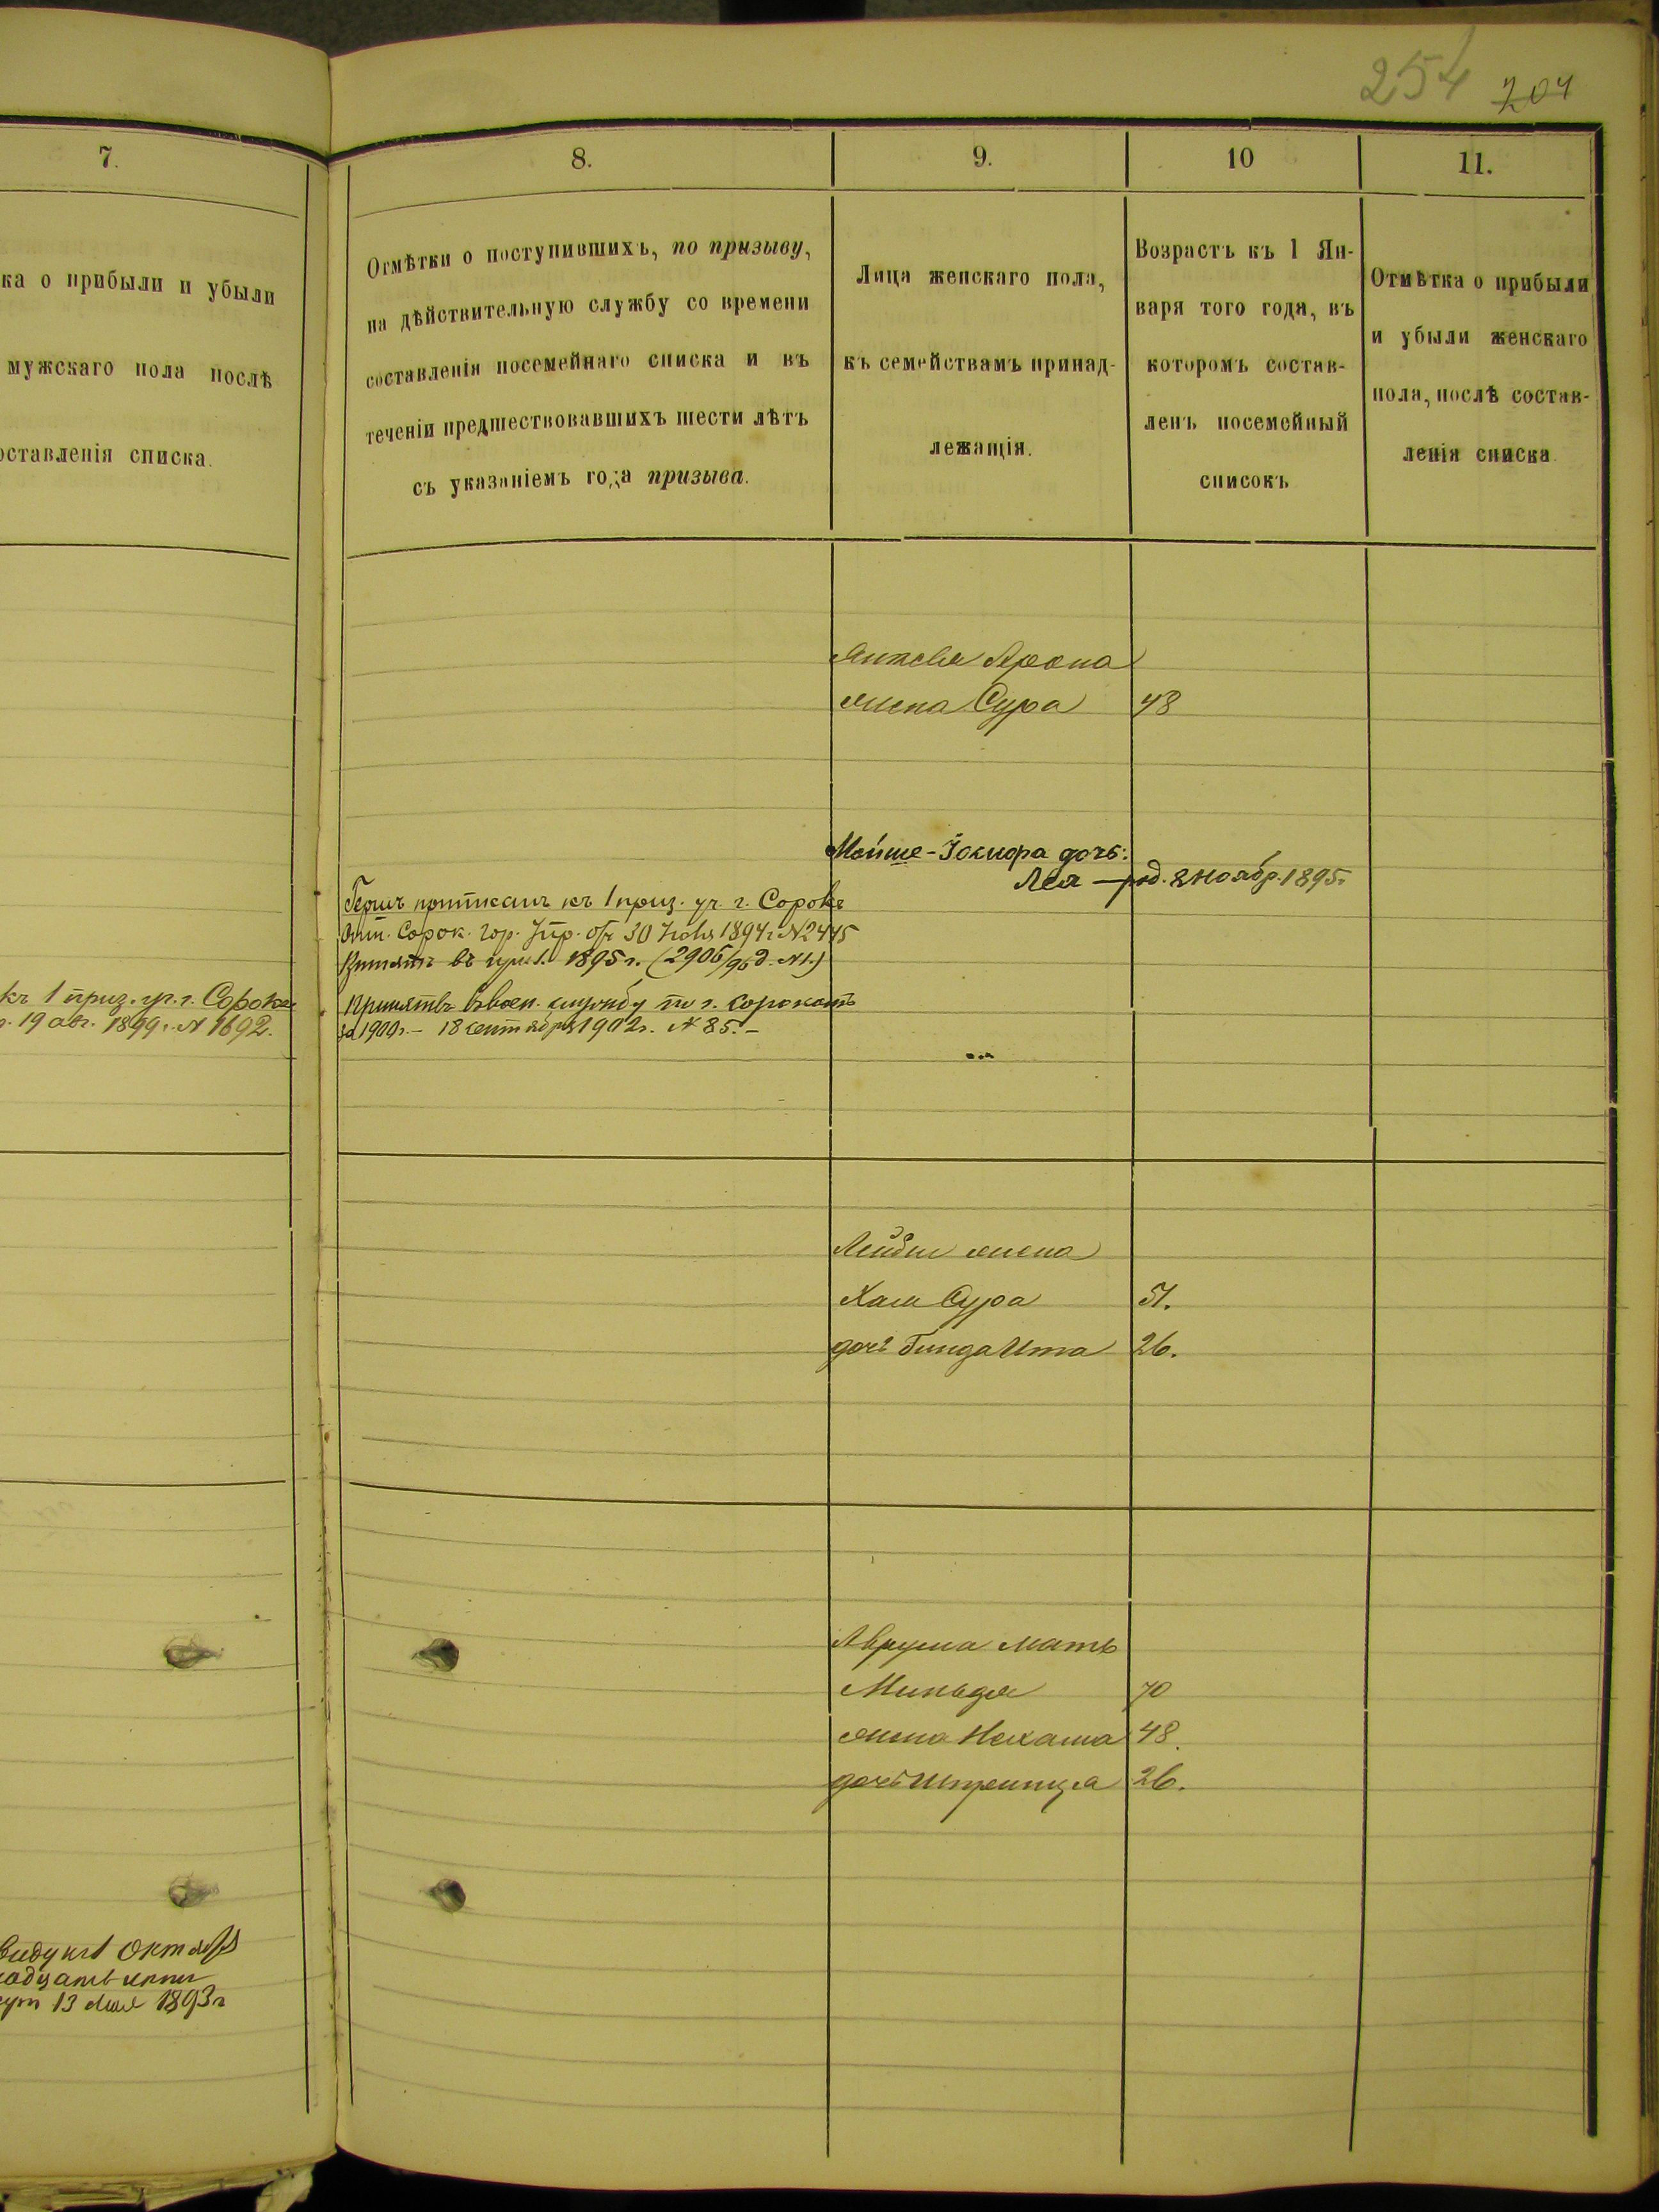 254 204
7.
ка о прибыли и убыли
мужскаго пола послѣ
оставленія списка.
къ 1 приз. уч. г. Сороки
19 авг. 1899 г. № 1692.
виду къ 1 Октября
13 мая 1893 г
8.
Отмѣтки о поступившихъ, по призыву,
на дѣйствительную службу со времени
составленія посемейнаго списка и въ
теченіи предшествовавшихъ шести лѣтъ
съ указаніемъ года призыва.
Гершъ приписанъ къ 1 приз. уч. г. Сороки
Сорок. Гор. Упр. от 30 Іюня 1894 г. № 2445
въ 1895 г. (2906/96 д. № 1.)
Принятъ въ воен. службу по г. Сорокамъ
за 1900 г. – 18 сентября 1902 г. № 85. –
9.
Лица женскаго пола,
къ семействамъ принад-
лежащія.
Янкеля Арона
жена Сура
Мойше-Іосифа дочь:
Лея — род. 8 ноябр. 1895 г.
Лейбы жена
Хая Сура
дочь Гинда Ита
Аврума мать
Миньдя
жена Нехама
дочь Шпринца
10
Возрастъ къ 1 Ян-
варя того года, въ
которомъ состав-
ленъ посемейный
списокъ
48
51.
26.
70
48.
26.
11.
Отмѣтка о прибыли
и убыли женскаго
пола, послѣ состав-
ленія списка.